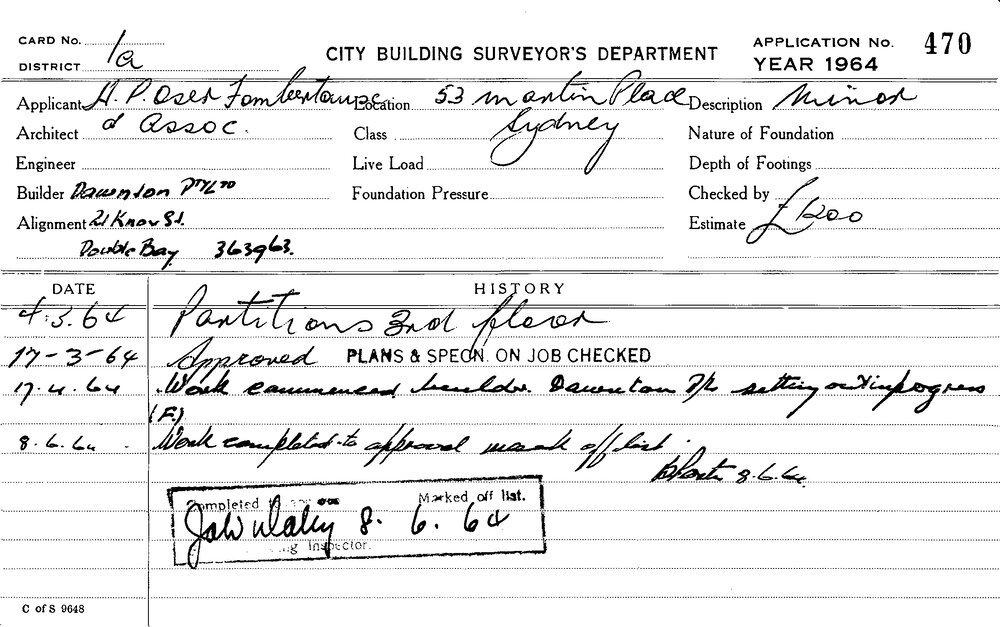 CARD No. 1a
CITY BUILDING SURVEYOR'S DEPARTMENT
APPLICATION No. 470
DISTRICT
YEAR 1964
Applicant H. P. Oser Fombertaux Location 53 Martin Place Description Minor
Architect & Assoc. Class Sydney Nature of Foundation
Engineer Live Load Depth of Footings
Builder Dawnton P/L TD Foundation Pressure Checked by
Alignment 21 Knox St. Estimate £1200
Double Bay 363963.
DATE HISTORY
4.3.64 Partitions 3rd floor
17-3-64 Approved PLANS & SPECN. ON JOB CHECKED
17.4.64 Work commenced builder Dawnton P/L setting out in progress
(F.)
8.6.64 Work completed to approval mark off list.
8.6.64
Completed to Marked off list.
8. 6. 64
Inspector.
C of S 9648